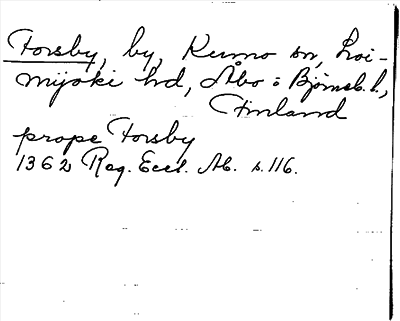 Forsby, by, Kumo sn, Loi-
mijoki hrd, Åbo o Björneb. l.,
Finland
prope Forsby
1362 Reg. Eccl. Ab. s. 116.